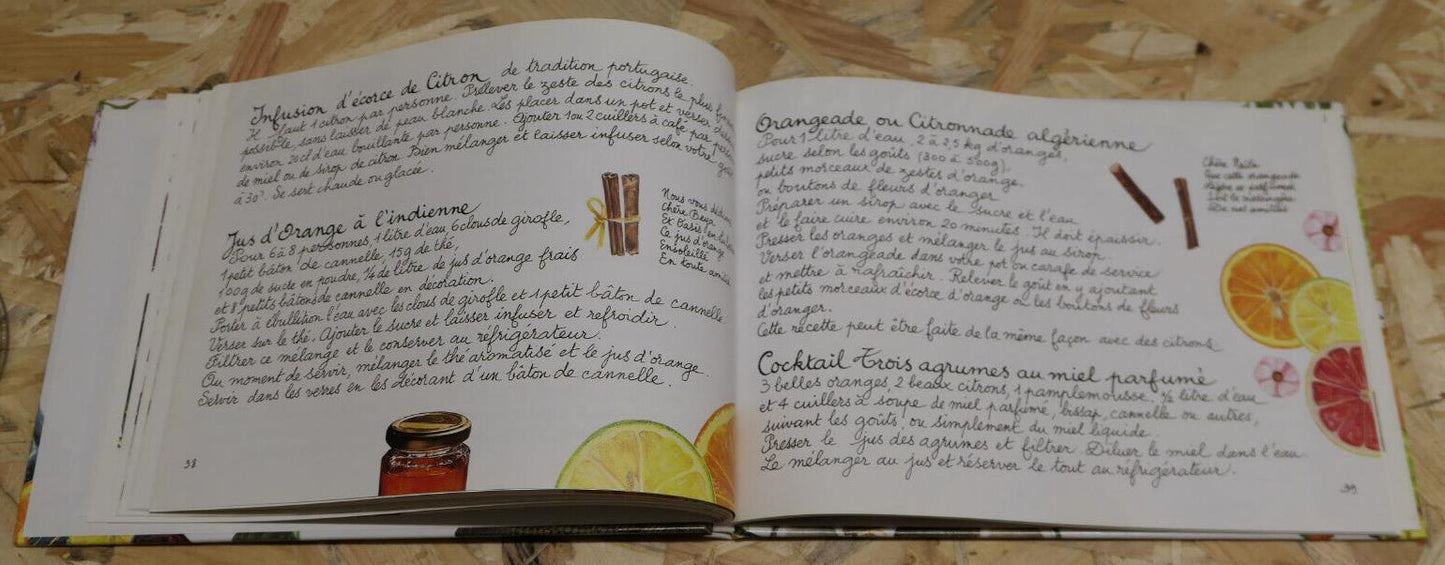 Infusion d'écorce de Citron de tradition portugaise.
Il faut 1 citron par personne. Prélever le zeste des citrons le plus
possible, sans laisser de peau blanche. Les placer dans un pot et verser
environ 20cl d'eau bouillante par personne. Ajouter 1 ou 2 cuillers à café par
de miel ou de sirop de citron. Bien mélanger et laisser infuser selon votre goût
à 30°. Se sert chaude ou glacée.
Jus d'Orange à l'indienne
Pour 6 à 8 personnes, 1 litre d'eau, 6 clous de girofle,
1 petit bâton de cannelle, 15g de thé,
100g de sucre en poudre, ¼ de litre de jus d'orange frais
et 8 petits bâtons de cannelle en décoration.
Porter à ébullition l'eau avec les clous de girofle et 1 petit bâton de cannelle.
Verser sur le thé. Ajouter le sucre et laisser infuser et refroidir.
Filtrer ce mélange et le conserver au réfrigérateur.
Au moment de servir, mélanger le thé aromatisé et le jus d'orange.
Servir dans les verres en les décorant d'un bâton de cannelle.
Nous vous
Chère
Et
Ce jus d'orange
Ensoleillé
En toute
38
Orangeade ou Citronnade algérienne
Pour 1 litre d'eau, 2 à 2,5 kg d'oranges,
sucre selon les goûts (300 à 500g),
petits morceaux de zestes d'orange
ou boutons de fleurs d'oranger
Préparer un sirop avec le sucre et l'eau
et le faire cuire environ 20 minutes. Il doit épaissir.
Presser les oranges et mélanger le jus au sirop.
Verser l'orangeade dans votre pot ou carafe de service
et mettre à rafraîchir. Relever le goût en y ajoutant
les petits morceaux d'écorce d'orange ou les boutons de fleurs
d'oranger.
Cette recette peut être faite de la même façon avec des citrons.
Chère
Que cette orangeade
Soit la messagère
De mon amitié
Cocktail Trois agrumes au miel parfumé
3 belles oranges, 2 beaux citrons, 1 pamplemousse, ½ litre d'eau
et 4 cuillers à soupe de miel parfumé, bissap, cannelle ou autres,
suivant les goûts, ou simplement du miel liquide.
Presser le jus des agrumes et filtrer. Diluer le miel dans l'eau.
Le mélanger au jus et réserver le tout au réfrigérateur.
39